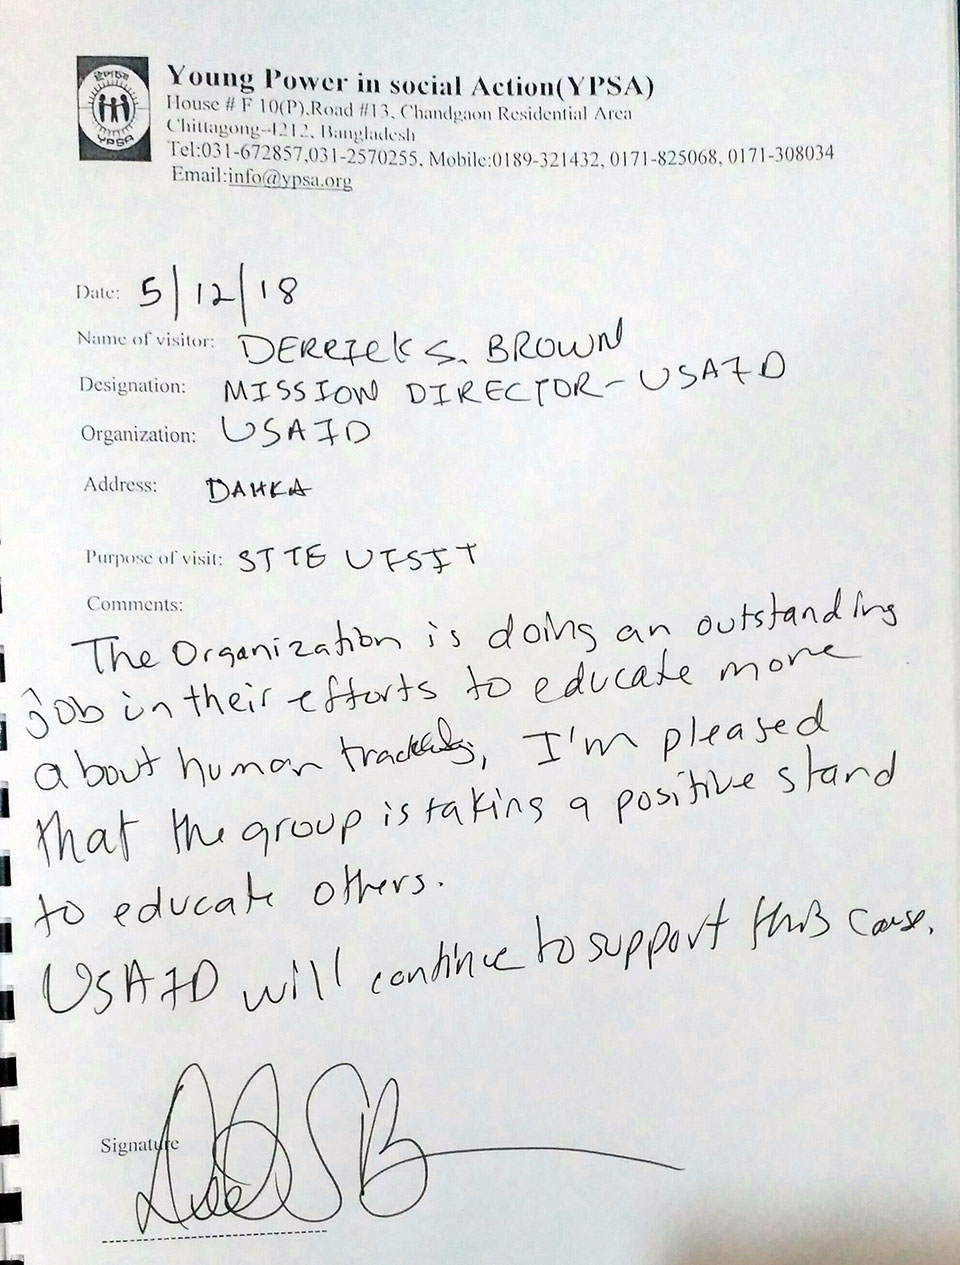 ইপসা
YPSA
Young Power in social Action(YPSA)
House # F 10(P),Road #13, Chandgaon Residential Area
Chittagong-4212, Bangladesh
Tel:031-672857,031-2570255, Mobile:0189-321432, 0171-825068, 0171-308034
Email:info@ypsa.org
Date: 5/12/18
Name of visitor: DERRICK S. BROWN
Designation: MISSION DIRECTOR - USAID
Organization: USAID
Address: DAHKA
Purpose of visit: SITE VISIT
Comments:
The Organization is doing an outstanding
job in their efforts to educate more
about human, I'm pleased
that the group is taking a positive stand
to educate others.
USAID will continue to support this cause.
Signature